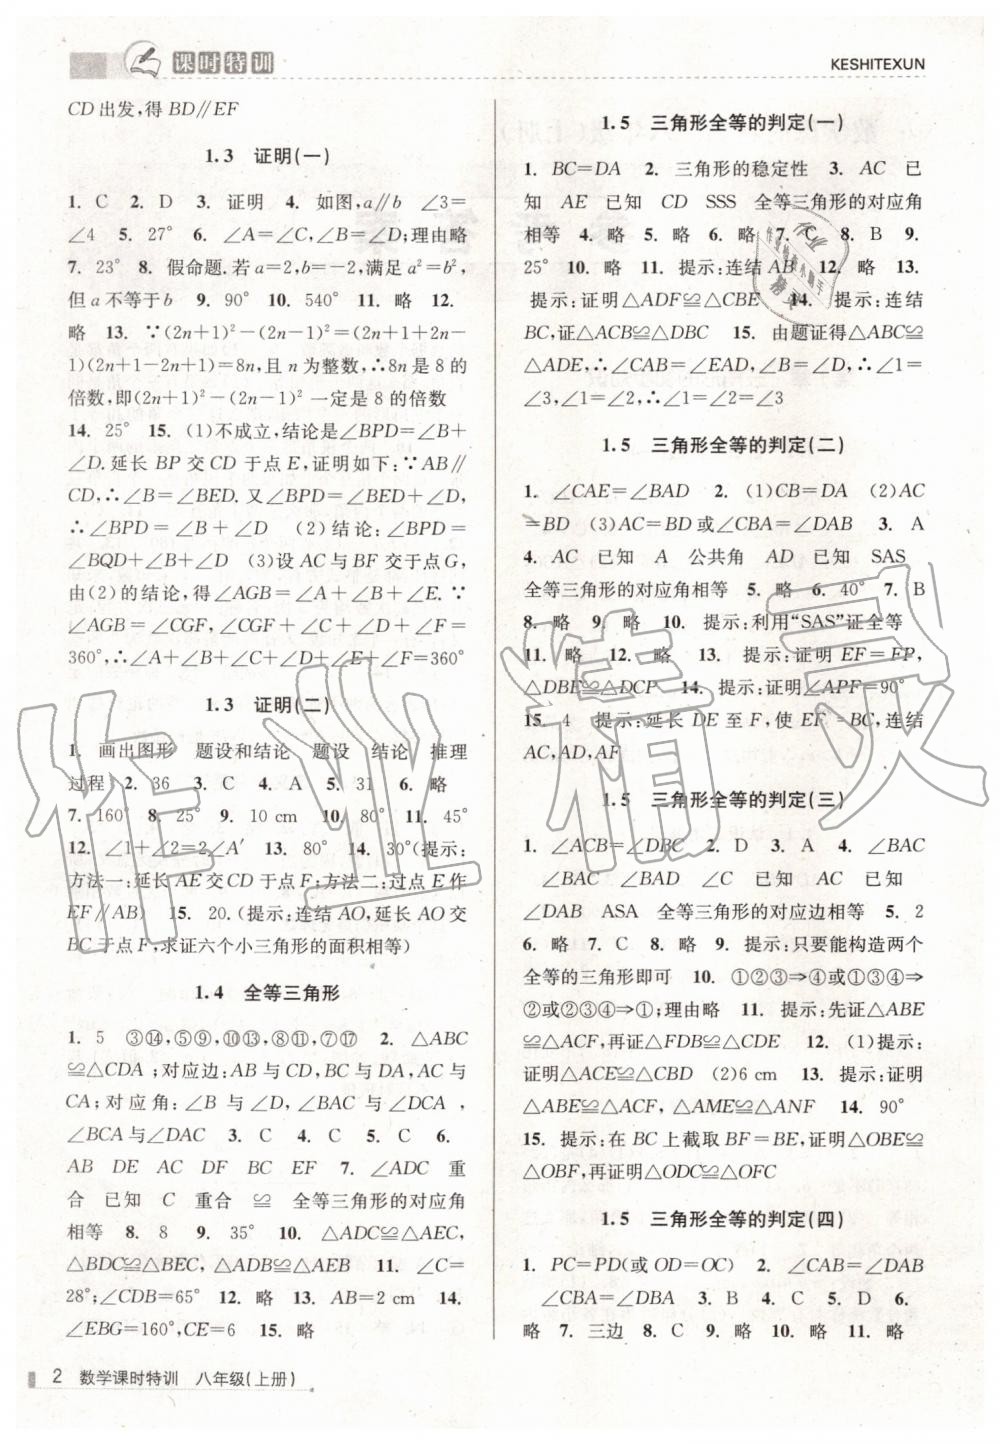 课时特训
KESHITEXUN
CD出发,得BD∥EF
1.3 证明(一)
1. C 2. D 3. 证明 4. 如图,a∥b ∠3=
∠4 5. 27° 6. ∠A=∠C,∠B=∠D;理由略
7. 23° 8. 假命题.若a=2,b=-2,满足a²=b²,
但a不等于b 9. 90° 10. 540° 11. 略 12.
略 13. ∵(2n+1)²-(2n-1)²=(2n+1+2n-
1)(2n+1-2n+1)=8n,且n为整数,∴8n是8的
倍数,即(2n+1)²-(2n-1)²一定是8的倍数
14. 25° 15. (1)不成立,结论是∠BPD=∠B+
∠D.延长BP交CD于点E,证明如下:∵AB∥
CD,∴∠B=∠BED.又∠BPD=∠BED+∠D,
∴∠BPD=∠B+∠D (2)结论:∠BPD=
∠BQD+∠B+∠D (3)设AC与BF交于点G,
由(2)的结论,得∠AGB=∠A+∠B+∠E.∵
∠AGB=∠CGF,∠CGF+∠C+∠D+∠F=
360°,∴∠A+∠B+∠C+∠D+∠E+∠F=360°
1.3 证明(二)
1. 画出图形 题设和结论 题设 结论 推理
过程 2. 36 3. C 4. A 5. 31 6. 略
7. 160° 8. 25° 9. 10 cm 10. 80° 11. 45°
12. ∠1+∠2=2∠A′ 13. 80° 14. 30°(提示:
方法一:延长AE交CD于点F;方法二:过点E作
EF∥AB) 15. 20.(提示:连结AO,延长AO交
BC于点F,求证六个小三角形的面积相等)
1.4 全等三角形
1. 5 ③⑭,⑤⑨,⑩⑬,⑧⑪,⑦⑰ 2. △ABC
≌△CDA;对应边:AB与CD,BC与DA,AC与
CA;对应角:∠B与∠D,∠BAC与∠DCA,
∠BCA与∠DAC 3. C 4. C 5. C 6.
AB DE AC DF BC EF 7. ∠ADC 重
合 已知 C 重合 ≌ 全等三角形的对应角
相等 8. 8 9. 35° 10. △ADC≌△AEC,
△BDC≌△BEC,△ADB≌△AEB 11. ∠C=
28°;∠CDB=65° 12. 略 13. AB=2 cm 14.
∠EBG=160°,CE=6 15. 略
1.5 三角形全等的判定(一)
1. BC=DA 2. 三角形的稳定性 3. AC 已
知 AE 已知 CD SSS 全等三角形的对应角
相等 4. 略 5. 略 6. 略 7. C 8. B 9.
25° 10. 略 11. 提示:连结AB 12. 略 13.
提示:证明△ADF≌△CBE 14. 提示:连结
BC,证△ACB≌△DBC 15. 由题证得△ABC≌
△ADE,∴∠CAB=∠EAD,∠B=∠D,∴∠1=
∠3,∠1=∠2,∴∠1=∠2=∠3
1.5 三角形全等的判定(二)
1. ∠CAE=∠BAD 2. (1)CB=DA (2)AC
=BD (3)AC=BD或∠CBA=∠DAB 3. A
4. AC 已知 A 公共角 AD 已知 SAS
全等三角形的对应角相等 5. 略 6. 40° 7. B
8. 略 9. 略 10. 提示:利用“SAS”证全等
11. 略 12. 略 13. 提示:证明EF=FP,
△DBE≌△DCP 14. 提示:证明∠APF=90°
15. 4 提示:延长DE至F,使EF=BC,连结
AC,AD,AF
1.5 三角形全等的判定(三)
1. ∠ABC=∠DBC 2. D 3. A 4. ∠BAC
∠BAC ∠BAD ∠C 已知 AC 已知
∠DAB ASA 全等三角形的对应边相等 5. 2
6. 略 7. C 8. 略 9. 提示:只要能构造两个
全等的三角形即可 10. ①②③⇒④或①③④⇒
②或②③④⇒①;理由略 11. 提示:先证△ABE
≌△ACF,再证△FDB≌△EDC 12. (1)提示:
证明△ACE≌△CBD (2)6 cm 13. 提示:证明
△ABE≌△ACF,△AME≌△ANF 14. 90°
15. 提示:在BC上截取BF=BE,证明△OBE≌
△OBF,再证明△ODC≌△OFC
1.5 三角形全等的判定(四)
1. PC=PD(或OD=OC) 2. ∠CAB=∠DAB
∠CBA=∠DBA 3. B 4. C 5. D 6.
略 7. 三边 8. C 9. C 10. 略 11. 略
2 数学课时特训 八年级(上册)
作业精灵